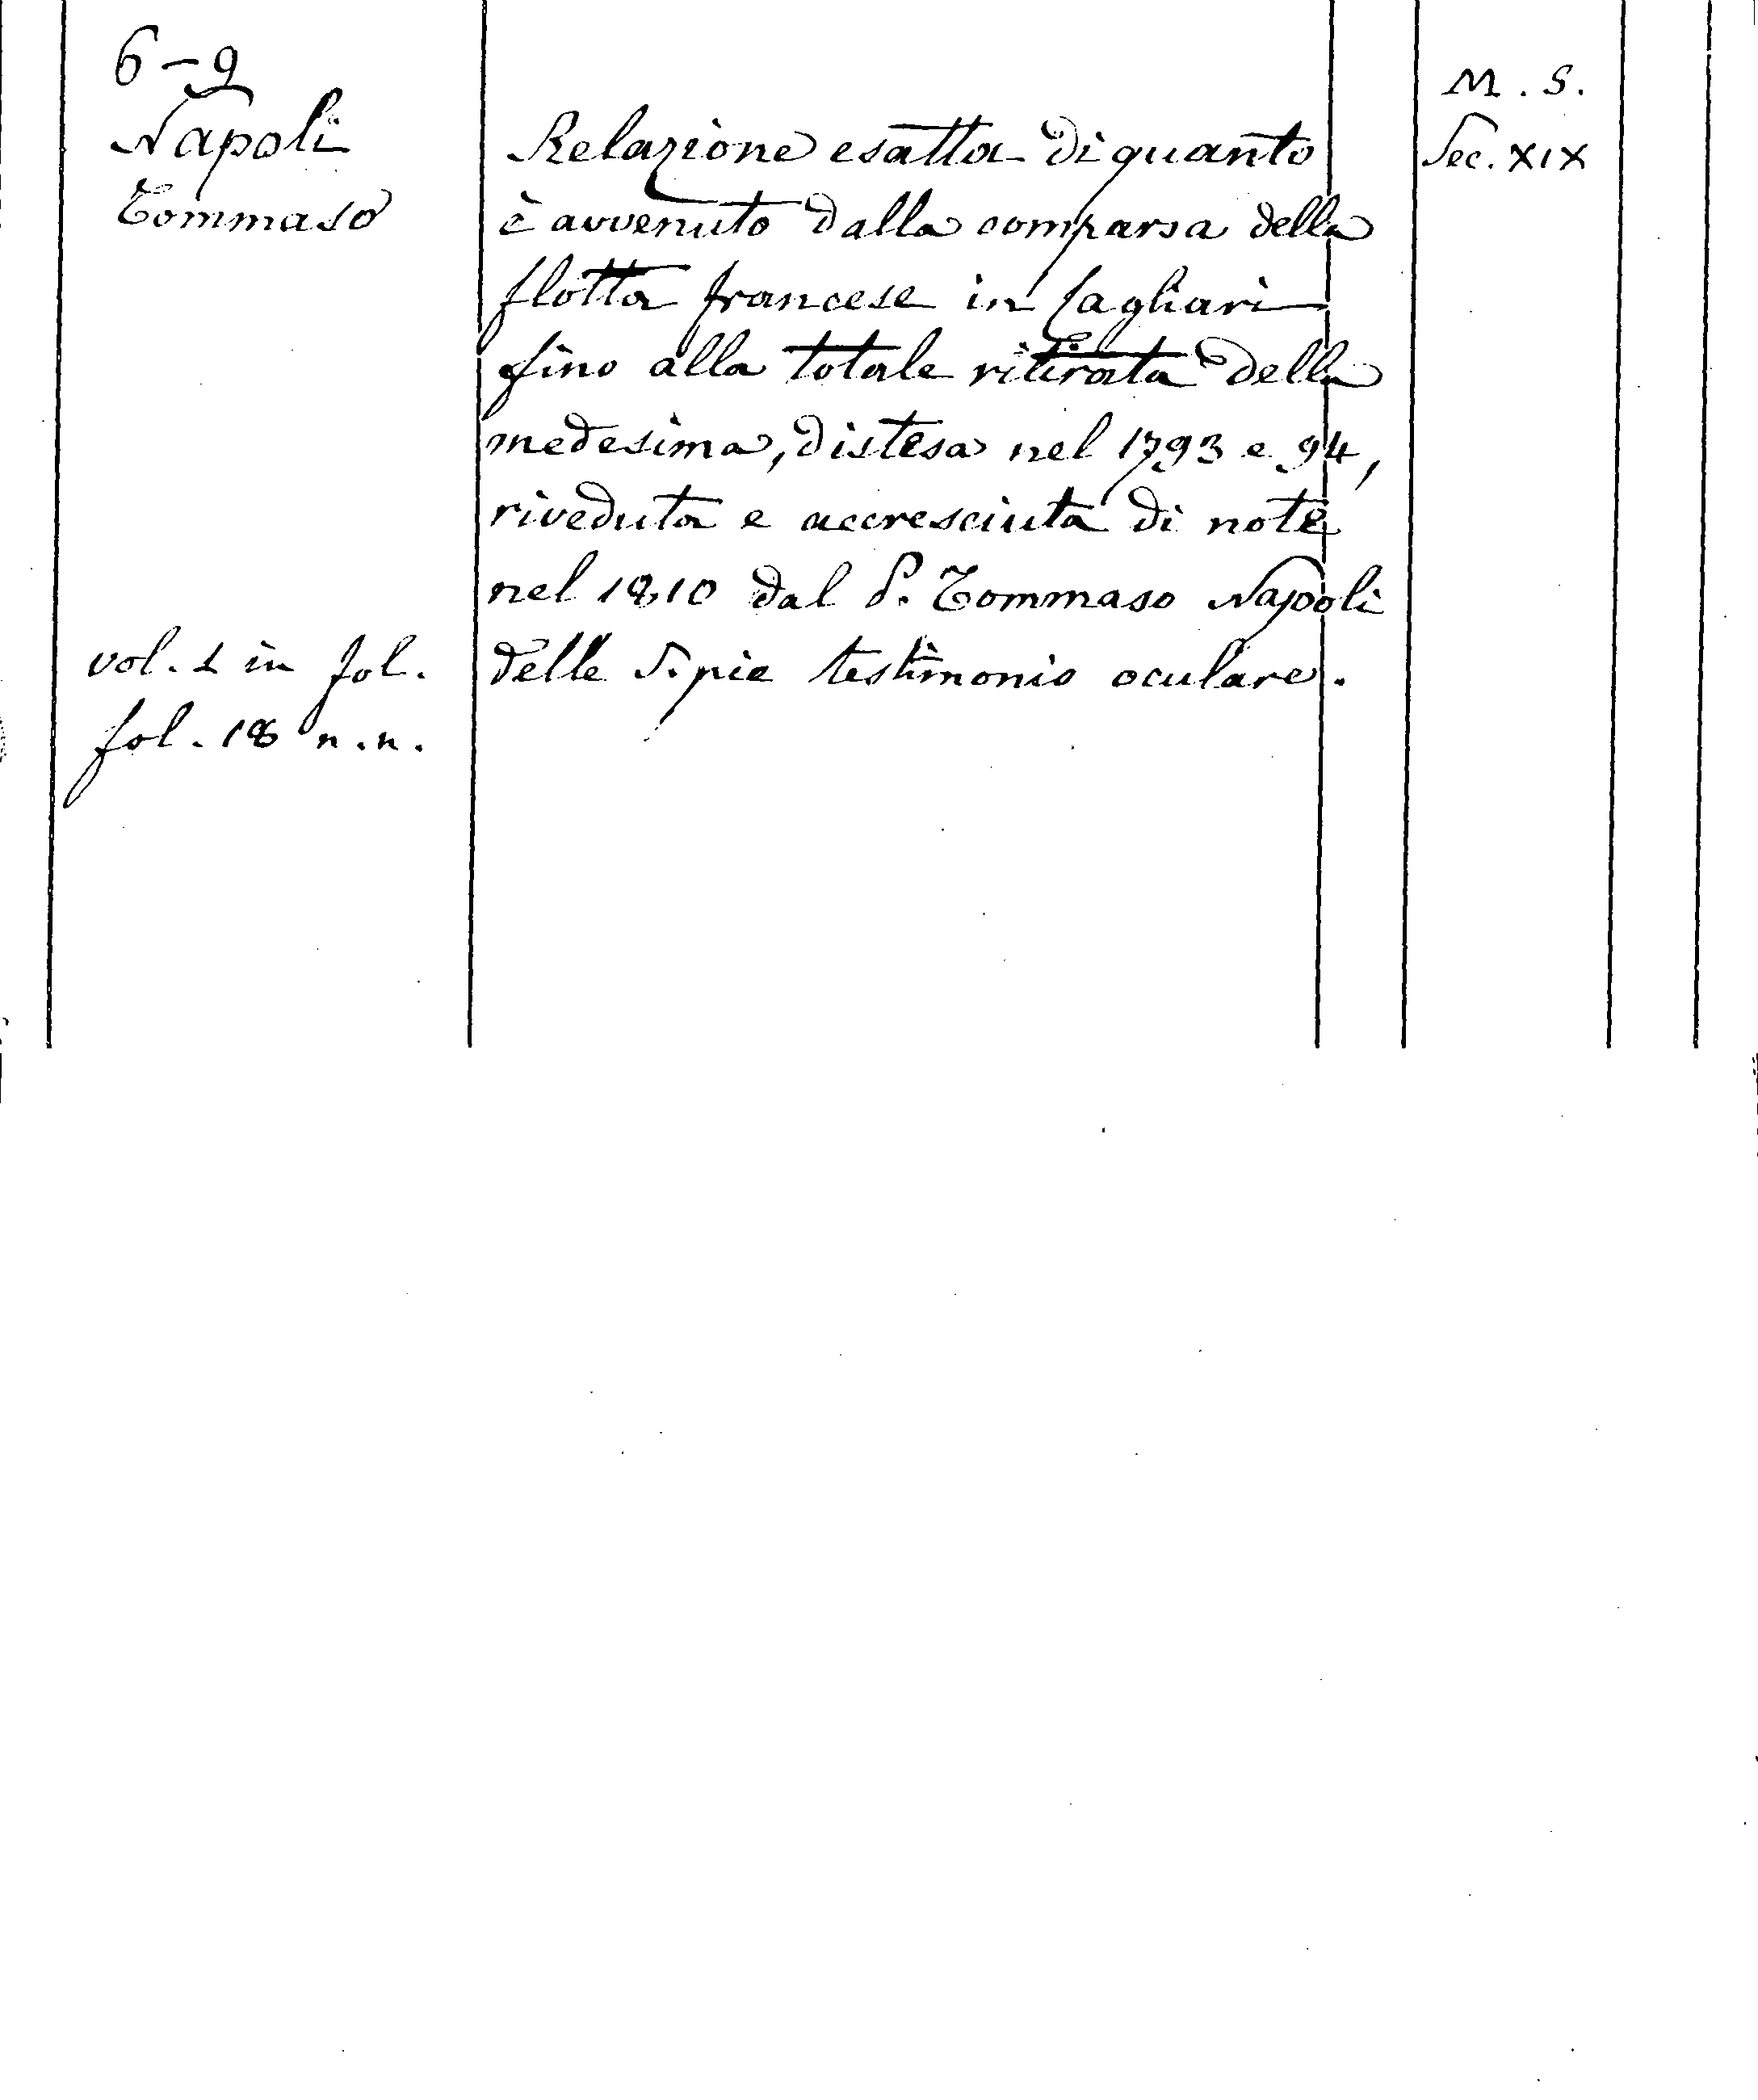 6-9
Napoli
Tommaso
vol. 1 in fol.
fol. 18 n.n.
Relazione esatta di quanto
è avvenuto dalla comparsa della
flotta francese in Cagliari
fino alla totale ritirata della
medesima, distesa nel 1793 e 94,
riveduta e accresciuta di note
nel 1810 dal P. Tommaso Napoli
delle S. pie testimonio oculare.
M. S.
Sec. XIX